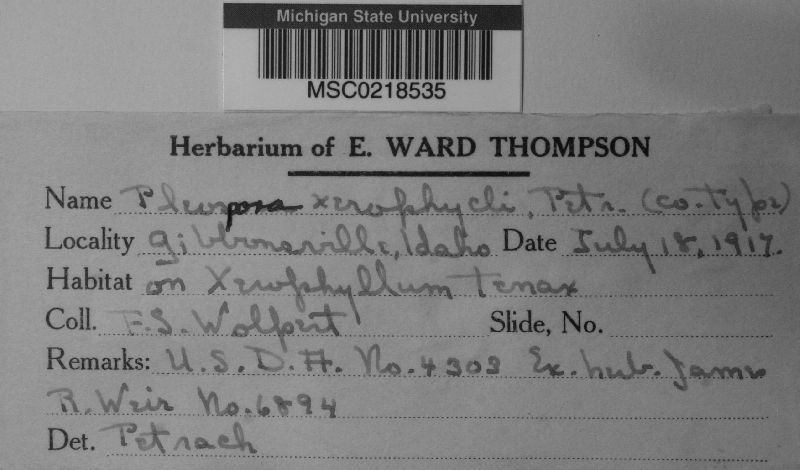 Michigan State University
MSC0218535
Herbarium of E. WARD THOMPSON
Name Pleospora xerophycli, Petr. (co-type)
Locality Gibbonsville, Idaho Date July 18, 1917.
Habitat on Xerophyllum Tenax
Coll. F.S. Wolpert Slide, No.
Remarks: U.S.D.A. No. 4303 Ex. herb. James
R. Weir No. 6894
Det. Petrach